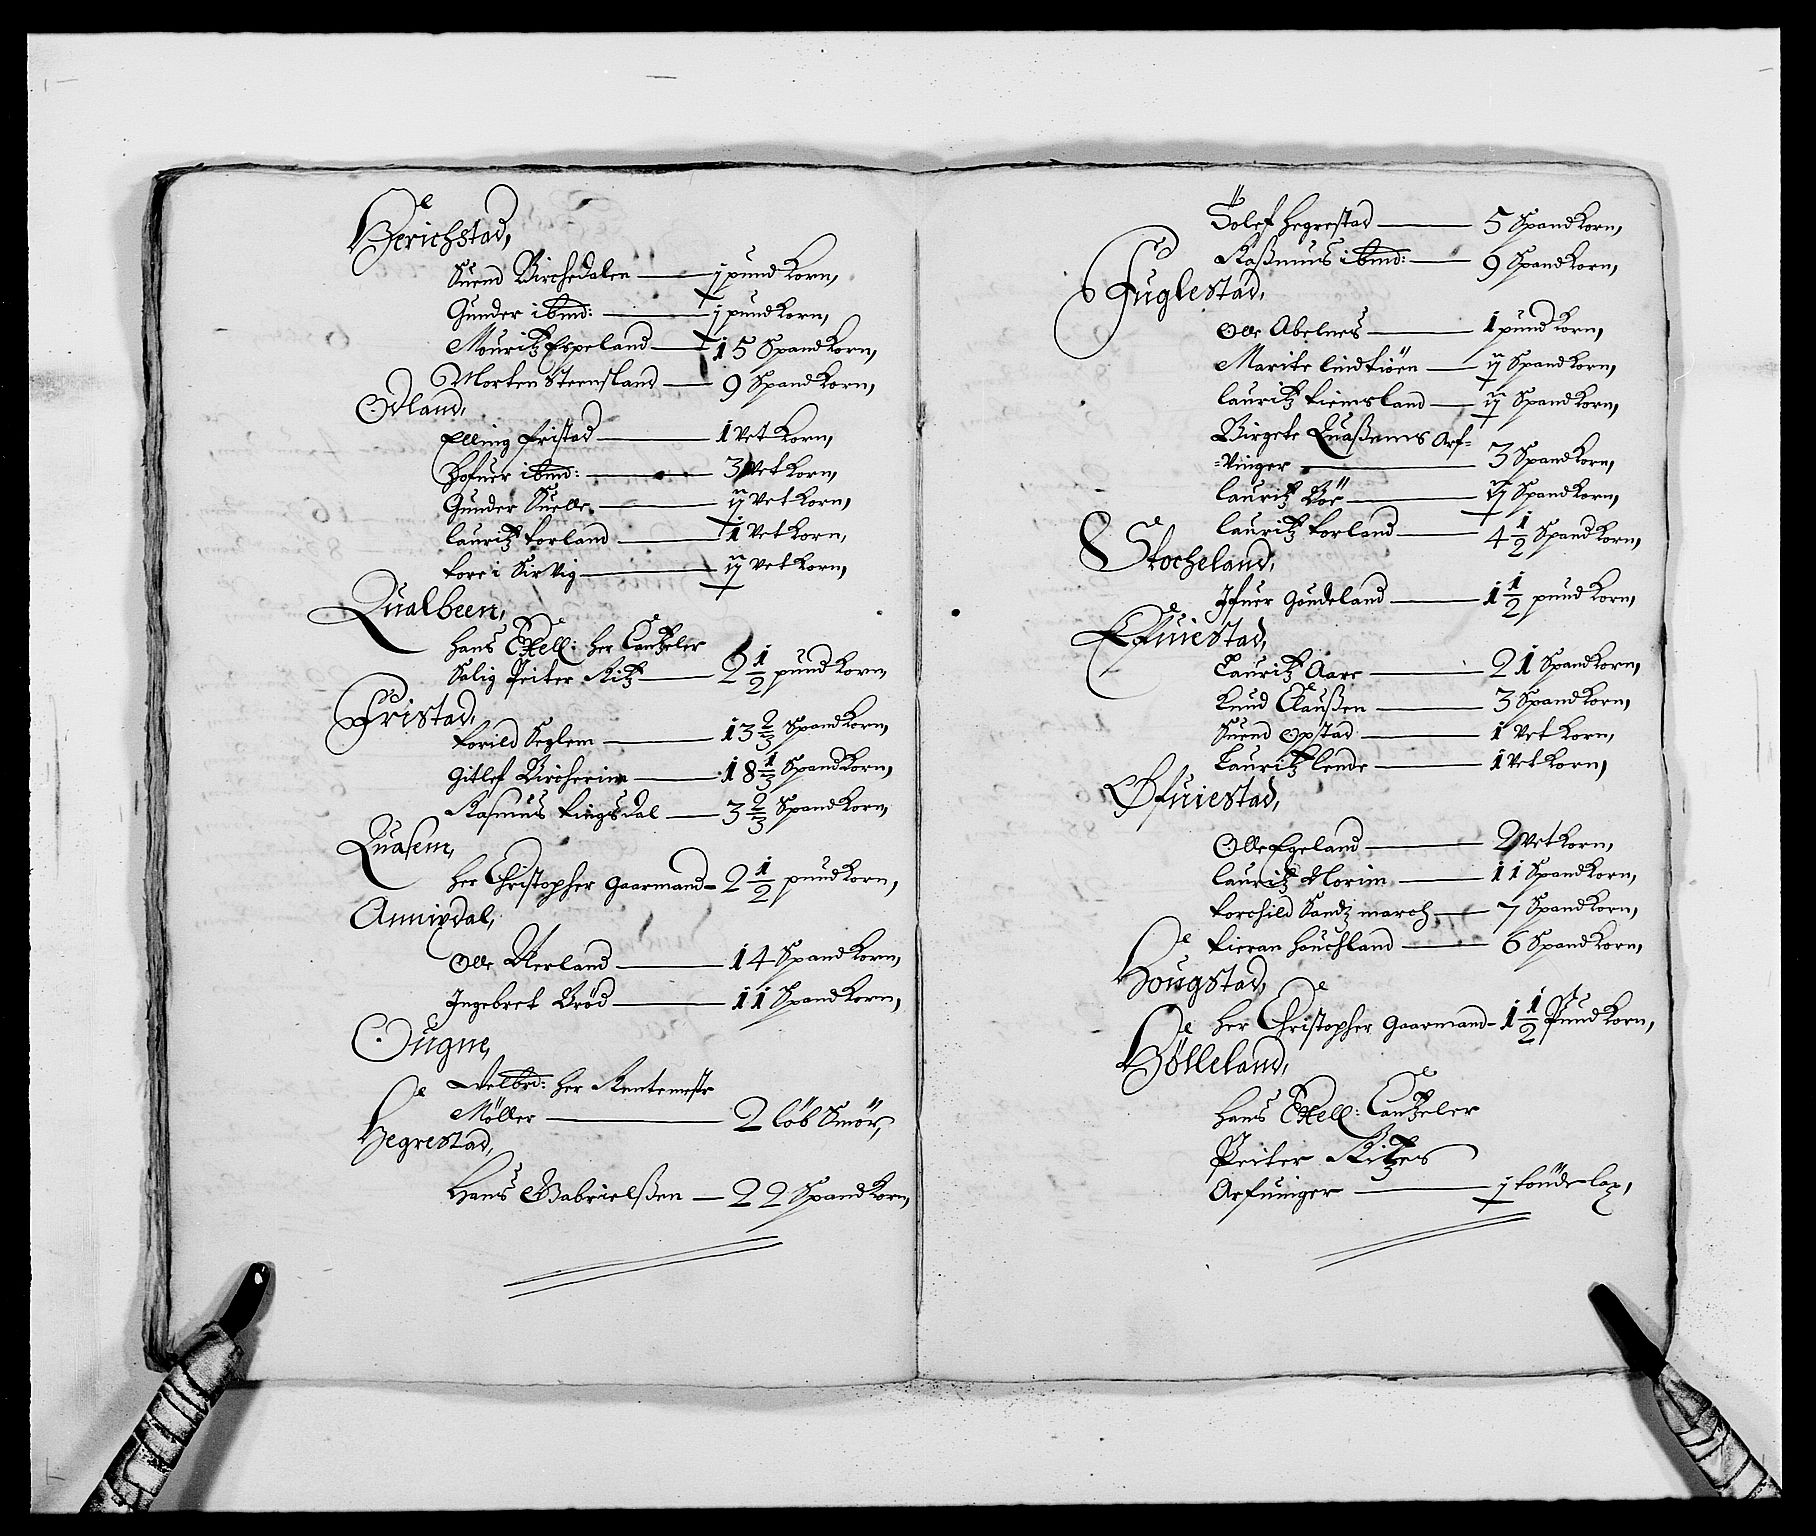 Berichstad,
Suend Birchedalen — j pund Korn,
Gunder ibmd: — j pund Korn,
Mouritz Espeland — 15 Spand Korn,
Morten Steensland — 9 Spand Korn,
Odland,
Elling Fristad — 1 Vet Korn,
Hofuer ibmd: — 3 Vet Korn,
Gunder Suelle — ij Vet Korn,
lauritz torland — 1 Vet Korn,
tore i Sirvig — ij Vet Korn,
Qualbeen,
Hans Exell: Her Cantzeler
Salig Peiter Ritz — 2 1/2 pund Korn,
Fristad,
torild Seglem — 13 2/3 Spand Korn,
Gitlef Bircherim — 18 1/3 Spand Korn,
Rasmus tingsdal — 3 2/3 Spand Korn,
Quasem,
Her Christopher Gaarmand — 2 1/2 pund Korn,
Annisdal,
Olle Werland — 14 Spand Korn,
Ingebret Brød — 11 Spand Korn,
Ougne,
Velbrd: Her Rentemestr
Möller — 2 löb Smör,
Hegrestad,
Hans Gabrielßen — 22 Spand Korn,
Tolef Hegrestad — 5 Spand Korn,
Raßmus ibmd: — 9 Spand Korn,
Fuglestad,
Olle Abelnes — 1 pund Korn,
Marite lindtiöen — ij Spand Korn,
lauritz tiemsland — ij Spand Korn,
Birgete Quaßems Arf=
=Vinger — 3 Spand Korn,
lauritz Böe — ij Spand Korn,
lauritz torland — 4 1/2 Spand Korn,
Stocheland,
Ifuer Goudeland — 1 1/2 pund Korn,
Efuiestad,
Lauritz Aarre — 21 Spand Korn,
Knud Claußen — 3 Spand Korn,
Suend Opstad — 1 Vet Korn,
Lauritz lende — 1 Vet Korn,
Øfuiestad,
Olle Egeland — 2 Vet Korn,
lauritz Horim — 11 Spand Korn,
torchild Sandz march — 7 Spand Korn,
tieran Houchland — 6 Spand Korn,
Hougstad,
Her Christopher Gaarmand — 1 1/2 Pund Korn,
Hölleland,
Hans Exell: Cantzeler
Peiter Ritzes
Arfuinger — j tönde lax,